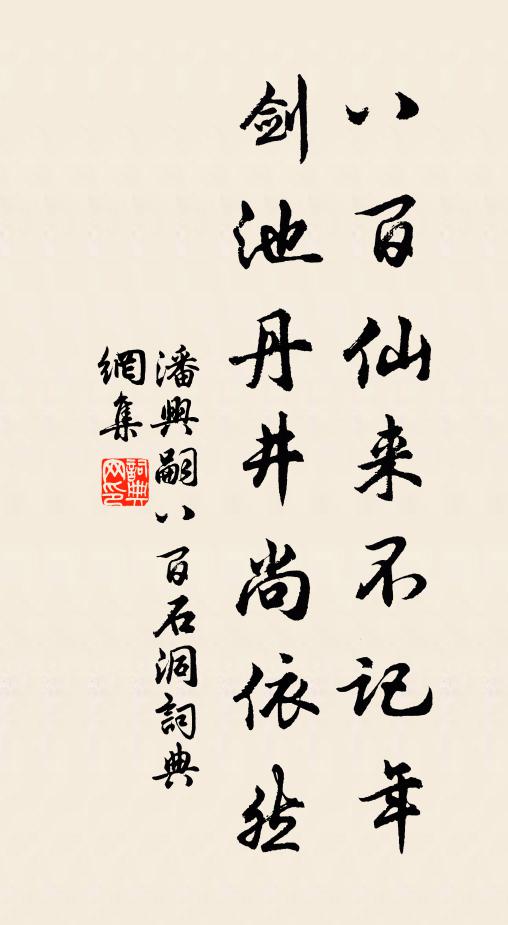 八百仙来不记年
剑池丹井尚依然
潘興嗣八百石洞詞典
網集
詞典
网印